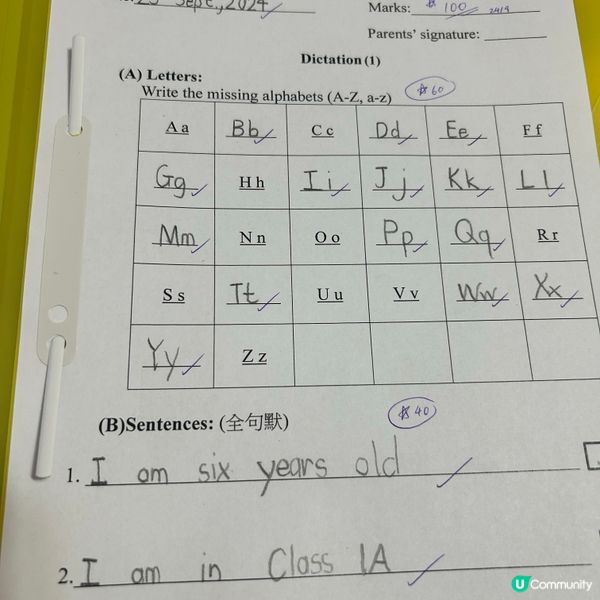 25 Sept., 2024
Marks: 100 24/9
Parents' signature:
Dictation (1)
(A) Letters:
Write the missing alphabets (A-Z, a-z) 60
A a Bb C c Dd Ee F f
Gg H h Ii Jj Kk Ll
Mm N n O o Pp Qq R r
S s Tt U u V v Ww Xx
Yy Z z
(B)Sentences: (全句默) 40
1. I am six years old
2. I am in Class 1A
U Community